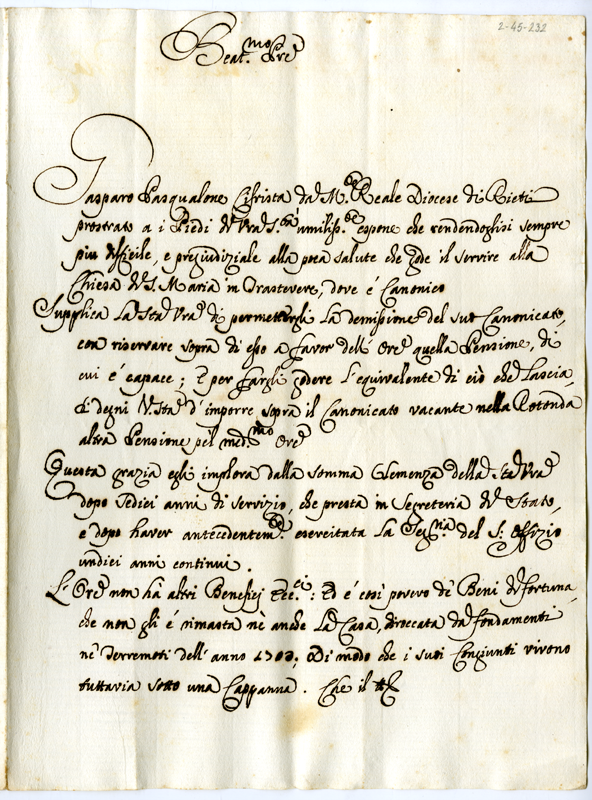 2-45-232
Beat.mo Pre
Gasparo Pasqualone Cifrista da M.te Reale Diocese di Rieti
prostrato a i Piedi d. Vra S.tà umiliss.te espone che rendendoglisi sempre
più difficile, e pregiudiziale alla poca salute che gode il servire alla
Chiesa di S. Maria in Trastevere, dove é Canonico
Supplica La Stà Vra di permettergli La demissione del suo Canonicato,
con riservare sopra di esso a favor dell' Ore quella Pensione, di
cui é capace; E per fargli godere L'equivalente di ciò che Lascia,
si degni V. Stà d'imporre sopra il Canonicato vacante nella Rotonda
altra Pensione pel med.mo Ore
Questa grazia egli implora dalla somma Clemenza della Stà Vra
dopo sedici anni di servizio, che presta in Segreteria di Stato,
e dopo haver antecedentem.te esercitata La Seg.ria del S. Offizio
undici anni continui.
L'Ore non hà altri Benefizj Ecc.ci: Ed é così povero de' Beni di fortuna,
che non gli é rimasta nè anche La Casa, diroccata da fondamenti
nè Terremoti dell' anno 1703, Di modo che i suoi Congiunti vivono
tuttavia sotto una Cappanna. Che il